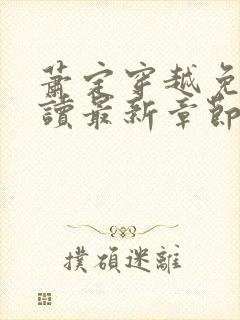 蕭定穿越免
讀最新章節
撲碩迷離